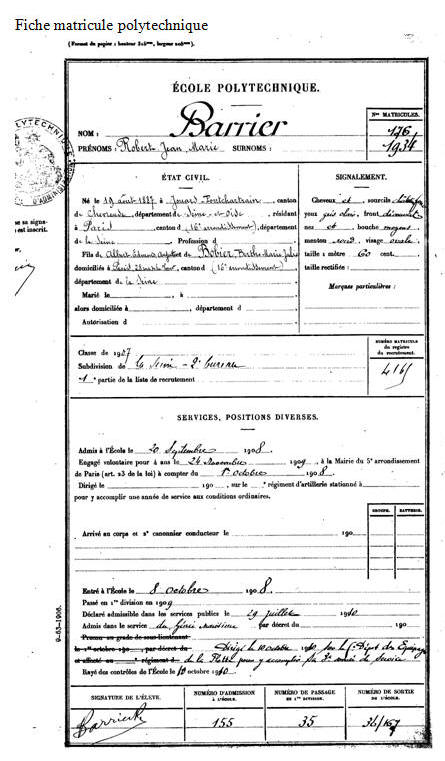 Fiche matricule polytechnique
(Format du papier : hauteur 315mm, largeur 205mm.)
ÉCOLE POLYTECHNIQUE.
NOM : Barrier
Nos MATRICULES.
176
1934
PRÉNOMS : Robert Jean Marie SURNOMS :
POLYTECHNIQUE
D'ADMINIST
sse sa signa-
est inscrit.
ÉTAT CIVIL.
Né le 19 août 1887 à Jouars-Pontchartrain, canton
de Chevreuse, département de Seine-et-Oise, résidant
à Paris, canton d (16e arrondissement), département
de la Seine. Profession d
Fils de Albert Edmond et de
domiciliés à Paris, canton d (16e arrondissement)
département de la Seine
Marié le , à
alors domiciliée à , département d
Autorisation d
SIGNALEMENT.
Cheveux , sourcils
yeux gris , front
nez , bouche moyenne
menton rond, visage ovale
taille : 1 mètre 60 cent.
taille rectifiée :
Marques particulières :
Classe de 1907
Subdivision de la Seine - 2e bureau
1e partie de la liste de recrutement
NUMÉRO MATRICULE
du registre
du recrutement.
SERVICES, POSITIONS DIVERSES.
Admis à l'École le 20 Septembre 1908.
Engagé volontaire pour 4 ans le 24 Novembre 1909, à la Mairie du 5e arrondissement
de Paris (art. 23 de la loi) à compter du 1er octobre 1908.
Dirigé le 190 , sur le e régiment d'artillerie stationné à
pour y accomplir une année de service aux conditions ordinaires.
GROUPE. BATTERIE.
Arrivé au corps et 2e canonnier conducteur le 190
Entré à l'École le 8 octobre 1908.
Passé en 1re division en 1909
Déclaré admissible dans les services publics le 29 juillet 1910
Admis dans le service du Génie Maritime par décret du 190
Promu au grade de sous-lieutenant
le 1er octobre 190 , par décret du Dirigé le 10 octobre 1910 sur le Dépôt des Equipages
et affecté au e régiment d de la Flotte pour y accomplir sa 3e année de Service
Rayé des contrôles de l'École le 10 octobre 1910.
9-53-1906.
SIGNATURE DE L'ÉLÈVE.
Barrier
NUMÉRO D'ADMISSION
à L'ÉCOLE.
155
NUMÉRO DE PASSAGE
EN 1re DIVISION.
35
NUMÉRO DE SORTIE
DE L'ÉCOLE.